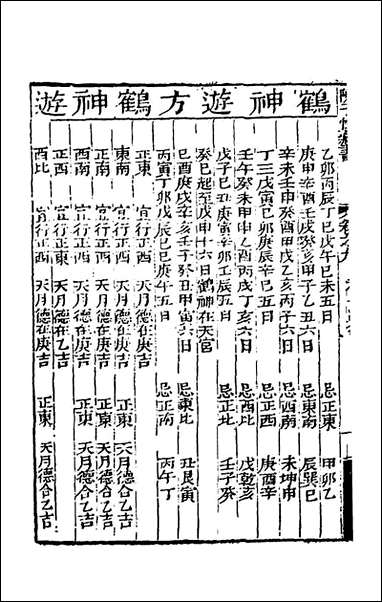 鶴神遊方鶴神遊
乙卯丙辰丁巳戊午己未五日 忌正東 甲卯乙
庚申辛酉壬戌癸亥甲子乙丑六日 忌東南 辰巽巳
辛未壬申癸酉甲戌乙亥丙子六日 忌西南 未坤申
丁丑戊寅己卯庚辰辛巳五日 忌正西 庚酉辛
壬午癸未甲申乙酉丙戌丁亥六日 忌西北 戌乾亥
戊子己丑庚寅辛卯壬辰五日 忌正北 壬子癸
癸巳起至戊申十六日鶴神在天宮
己酉庚戌辛亥壬子癸丑甲寅六日 忌東北 丑艮寅
丙寅丁卯戊辰己巳庚午五日 忌正南 丙午丁
正東 宜行正西 天月德在庚吉
東南 宜行正西 天月德在庚吉 正東 天月德合乙吉
西南 宜行正西 天月德在庚吉 正東 天月德合乙吉
正南 宜行正西 天月德在庚吉 正東 天月德合乙吉
正西 宜行正東 天月德在乙吉
西北 宜行正西 天月德在庚吉 正東 天月德合乙吉